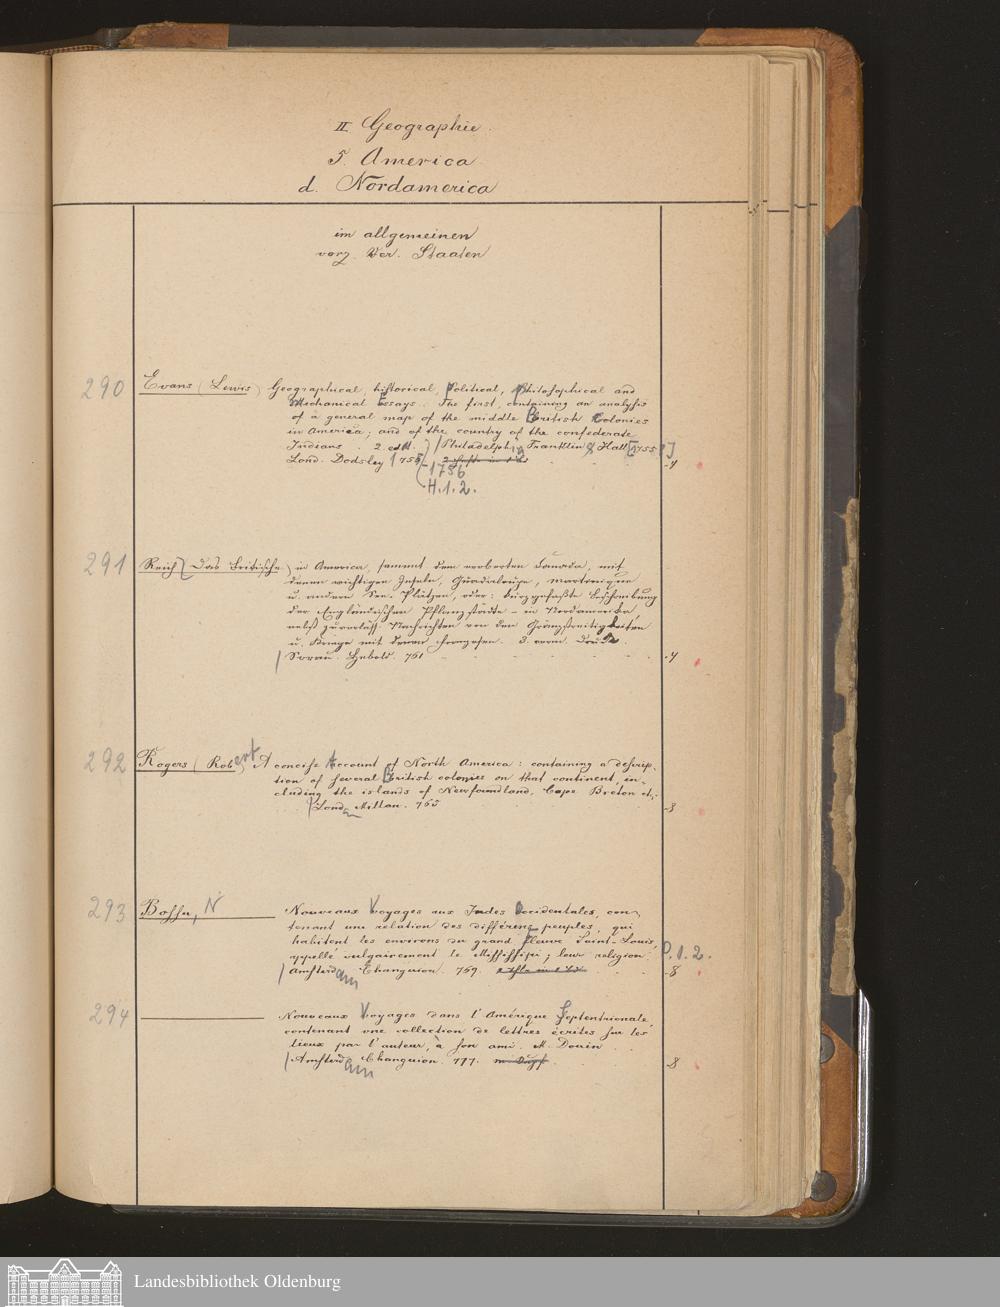 II. Geographie.
5. America
d. Nordamerica
im allgemeinen
vorz. Ver. Staaten
290 Evans (Lewis) Geographical, historical, Political, Philosophical and
Mechanical Essays. The first, containing an analysis
of a general map of the middle British Colonies
in America; and of the country of the confederate
Indians. 2. edit. Philadelphia Franklin & Hall [1755?]
Lond. Dodsley 1755 2 Hefte in 1 Bd. -4
-1756
H.1.2.
291 Reich (Das Britische) in America, sammt dem eroberten Canada, mit
denen wichtigen Inseln, Guadaloupe, Martenique
u. andern See-Plätzen, oder: kurzgefaßte Beschreibung
der Engländischen Pflanzstädte - in Nordamerika,
nebst zuverläss. Nachrichten von den Gränzstreitigkeiten
u. Kriege mit denen Franzosen. 3. verm. Druck.
Sorau. Hebold. 761 -4
292 Rogers (Robert) A concise Account of North America: containing a descrip-
tion of several British colonies on that continent, in-
cluding the islands of Newfoundland, Cape Breton etc.
London Millan. 765 -8
293 Bossu, N Nouveaux Voyages aux Indes Occidentales, con-
tenant une relation des différens peuples, qui
habitent les environs du grand fleuve Saint-Louis,
appellé vulgairement le Mississipi; leur religion. P.1.2.
Amsterdam Changuion. 769. 2 Thle in 1 Bd. -8
294 Nouveaux Voyages dans l'Amérique Septentrionale,
contenant une collection de lettres écrites sur les
lieux par l'auteur, à son ami. M. Douin
Amsterdam Changuion. 777. m. Kupf. -8
Landesbibliothek Oldenburg